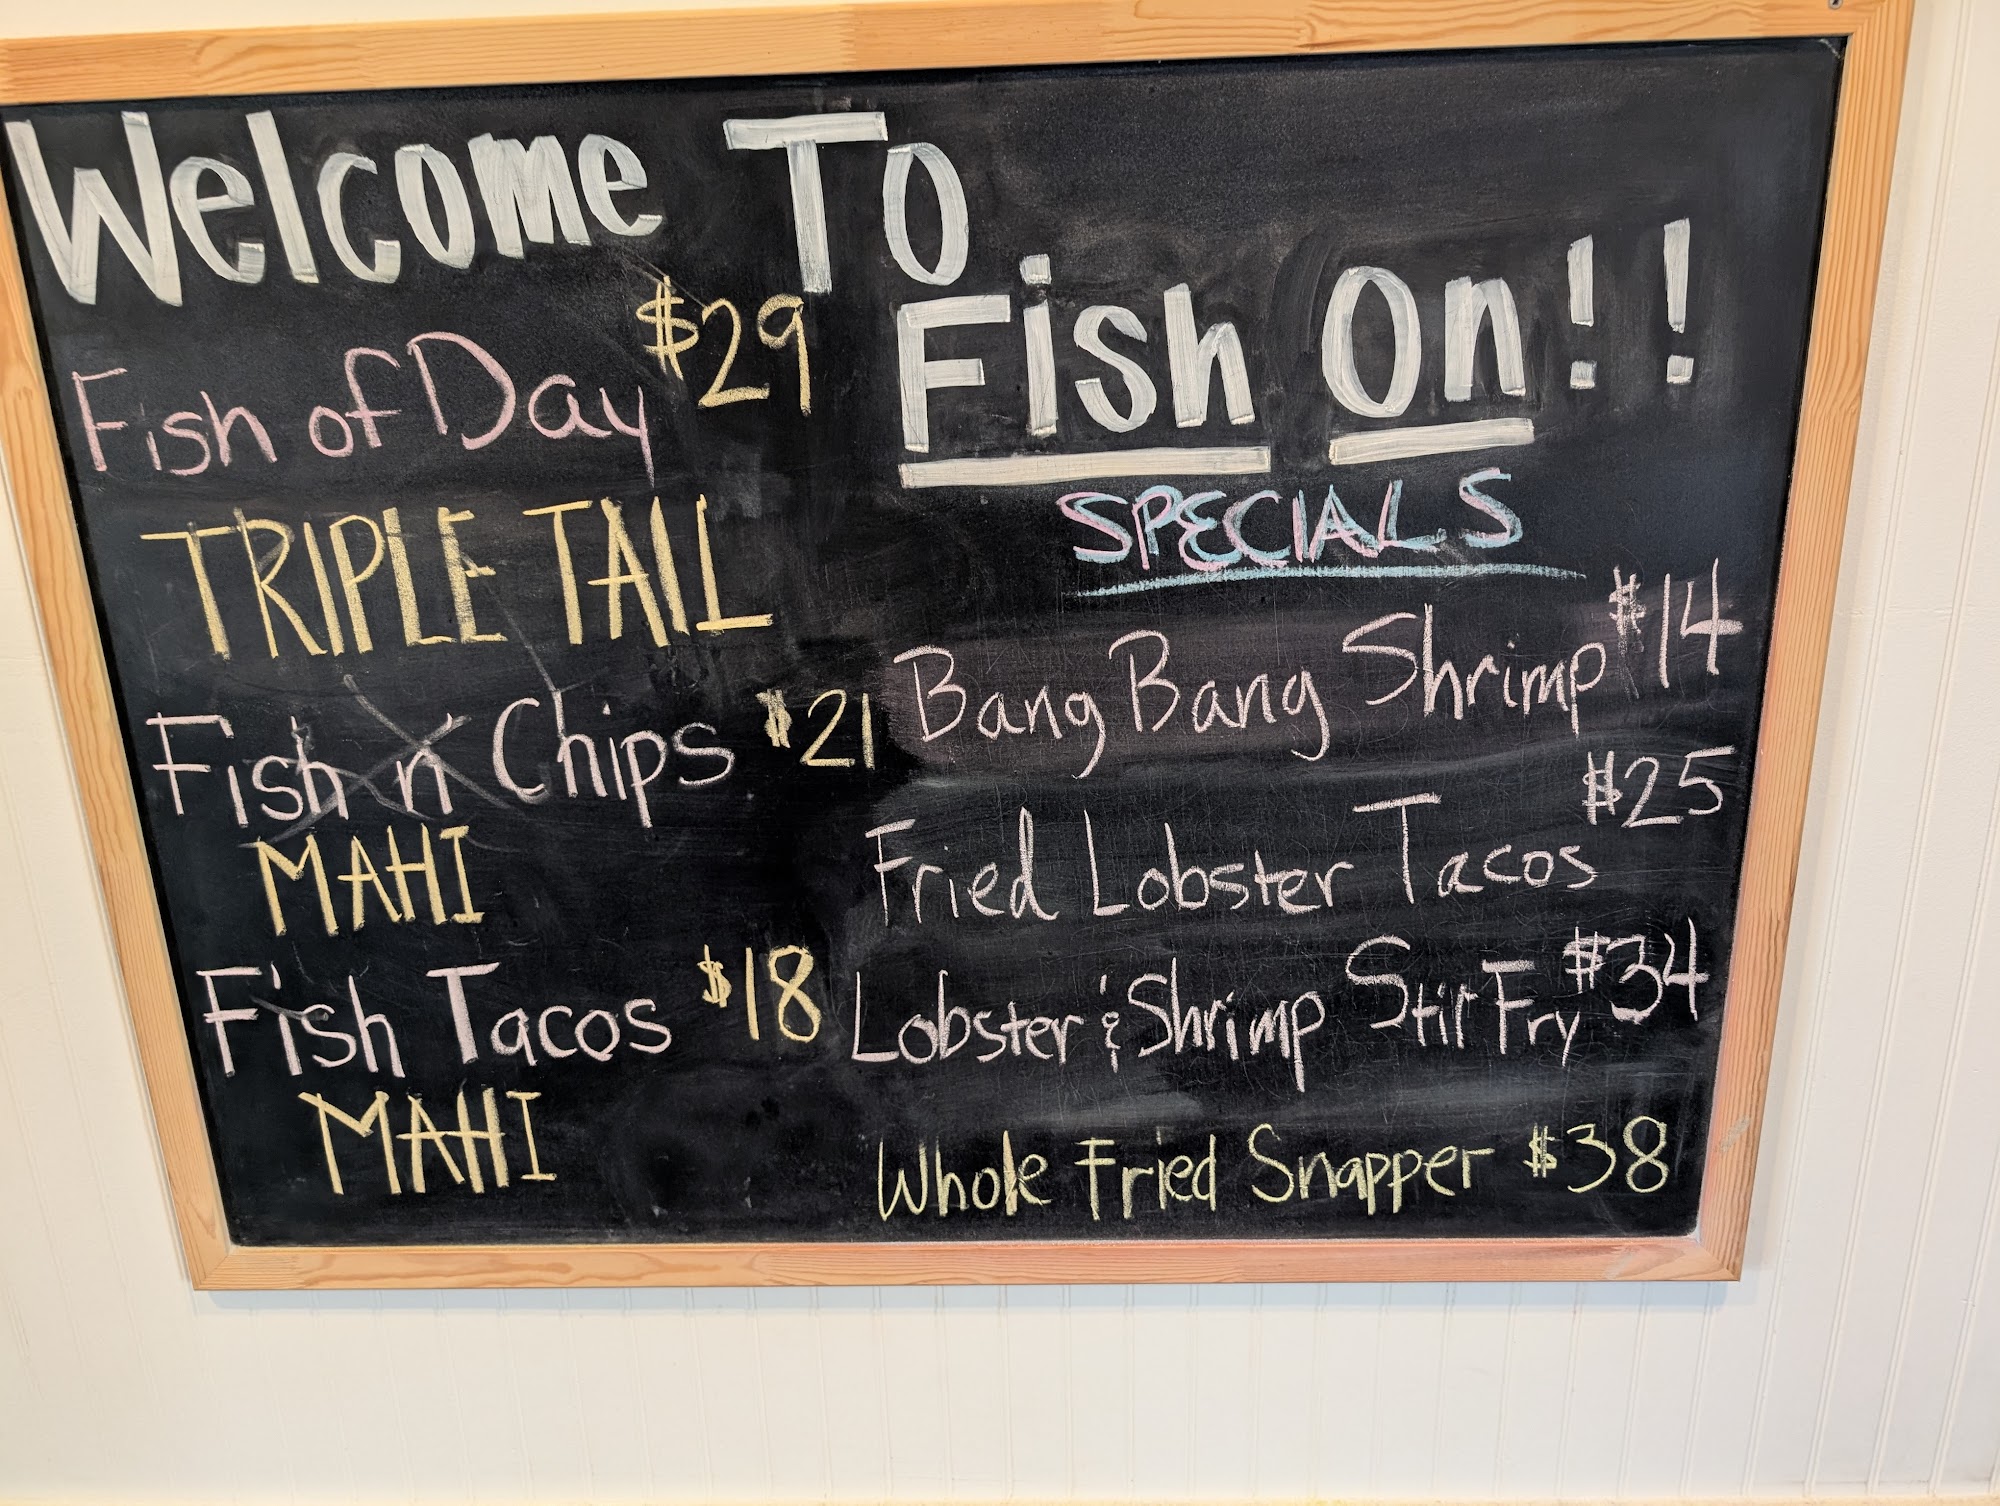 Welcome To
Fish On!!
Fish of Day $29
TRIPLE TAIL
Fish n' Chips $21
MAHI
Fish Tacos $18
MAHI
SPECIALS
Bang Bang Shrimp $14
Fried Lobster Tacos $25
Lobster & Shrimp Stir Fry $34
Whole Fried Snapper $38